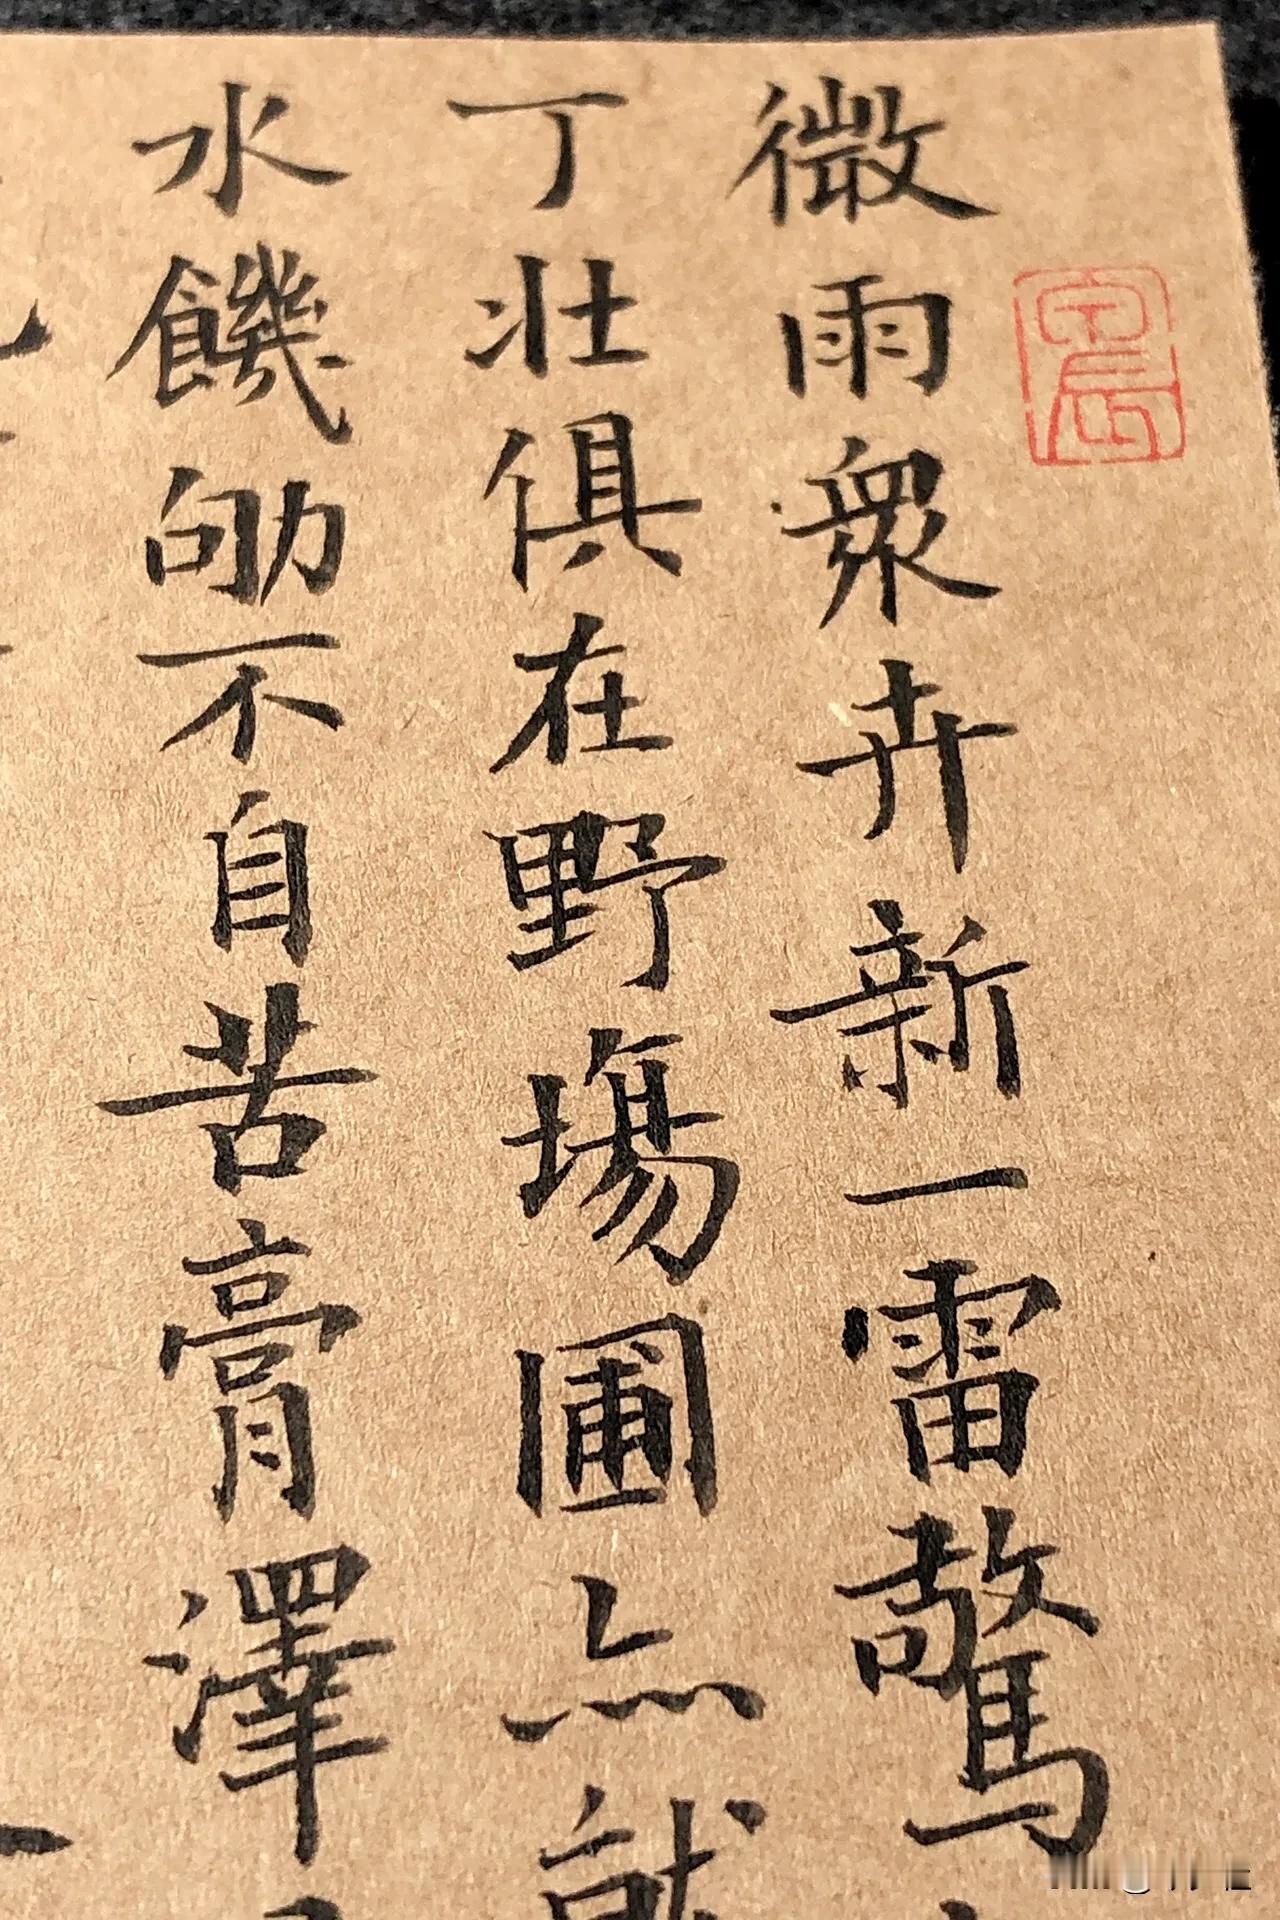 微雨眾卉新一雷驚
丁壯俱在野場圃亦就
水饑劬不自苦膏澤